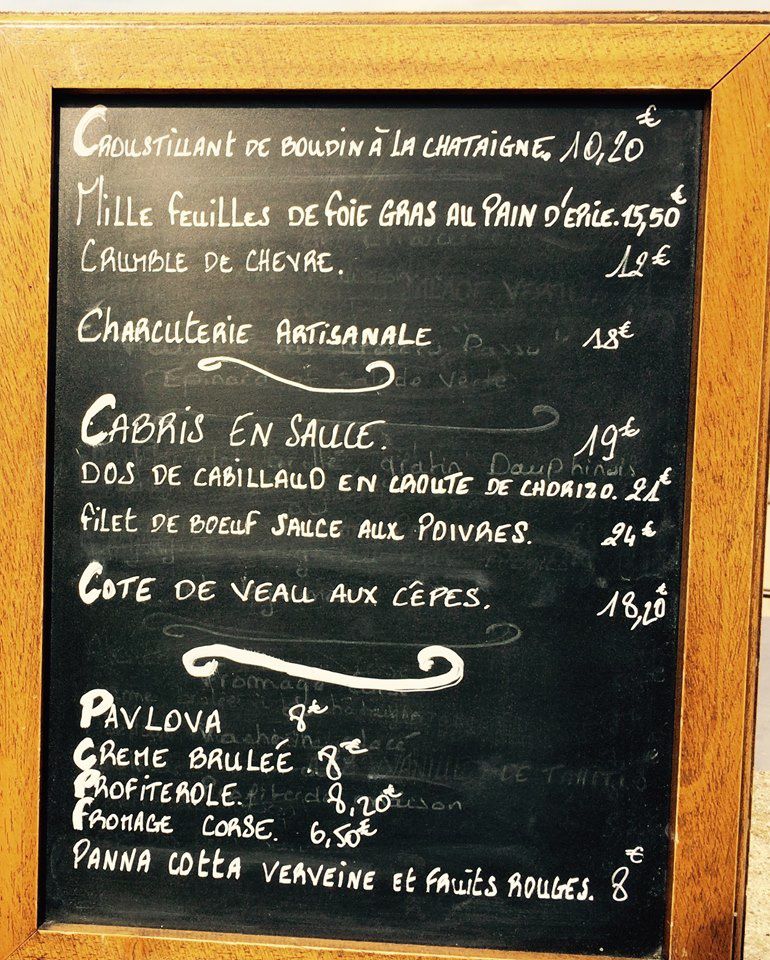 CROUSTILLANT DE BOUDIN À LA CHATAIGNE. 10,20€
MILLE FEUILLES DE FOIE GRAS AU PAIN D'EPICE. 15,50€
CRUMBLE DE CHEVRE. 12€
CHARCUTERIE ARTISANALE 18€
CABRIS EN SAUCE. 19€
DOS DE CABILLAUD EN CROUTE DE CHORIZO. 21€
FILET DE BOEUF SAUCE AUX POIVRES. 24€
COTE DE VEAU AUX CÊPES. 18,20€
PAVLOVA 8€
CREME BRULEÉ 8€
PROFITEROLE. 8,20€
FROMAGE CORSE. 6,50€
PANNA COTTA VERVEINE ET FRUITS ROUGES. 8€